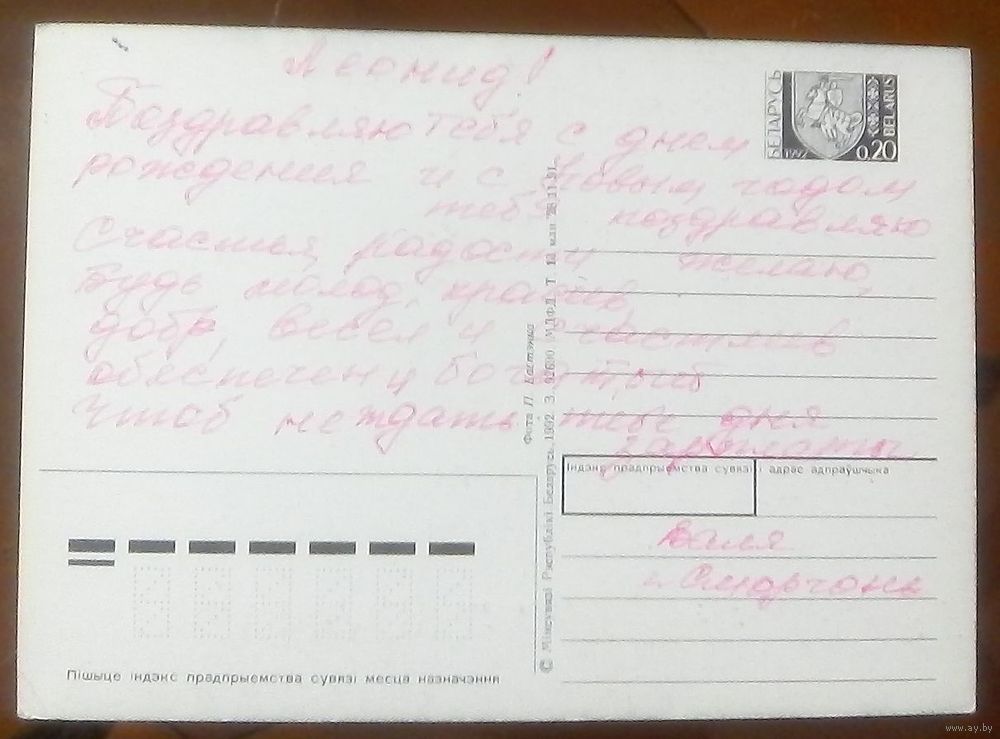 Леонид!
Поздравляю тебя с днем
рождения и с Новым годом
тебя поздравляю
Счастья, радости желаю,
Будь молод, красив,
добр, весел и счастлив
обеспечен и богатый
Чтоб не ждать тебе дня
зарплаты
Валя
г. Сморгонь
БЕЛАРУСЬ
1992
0.20
BELARUS
Фота П. Кастэнка
© Мінсувязі Рэспублікі Беларусь, 1992 З. 92600 МДФД Т. 12 млн 28.11.91
Індэкс прадпрыемства сувязі і адрас адпраўшчыка
Пішыце індэкс прадпрыемства сувязі месца назначэння
www.ay.by